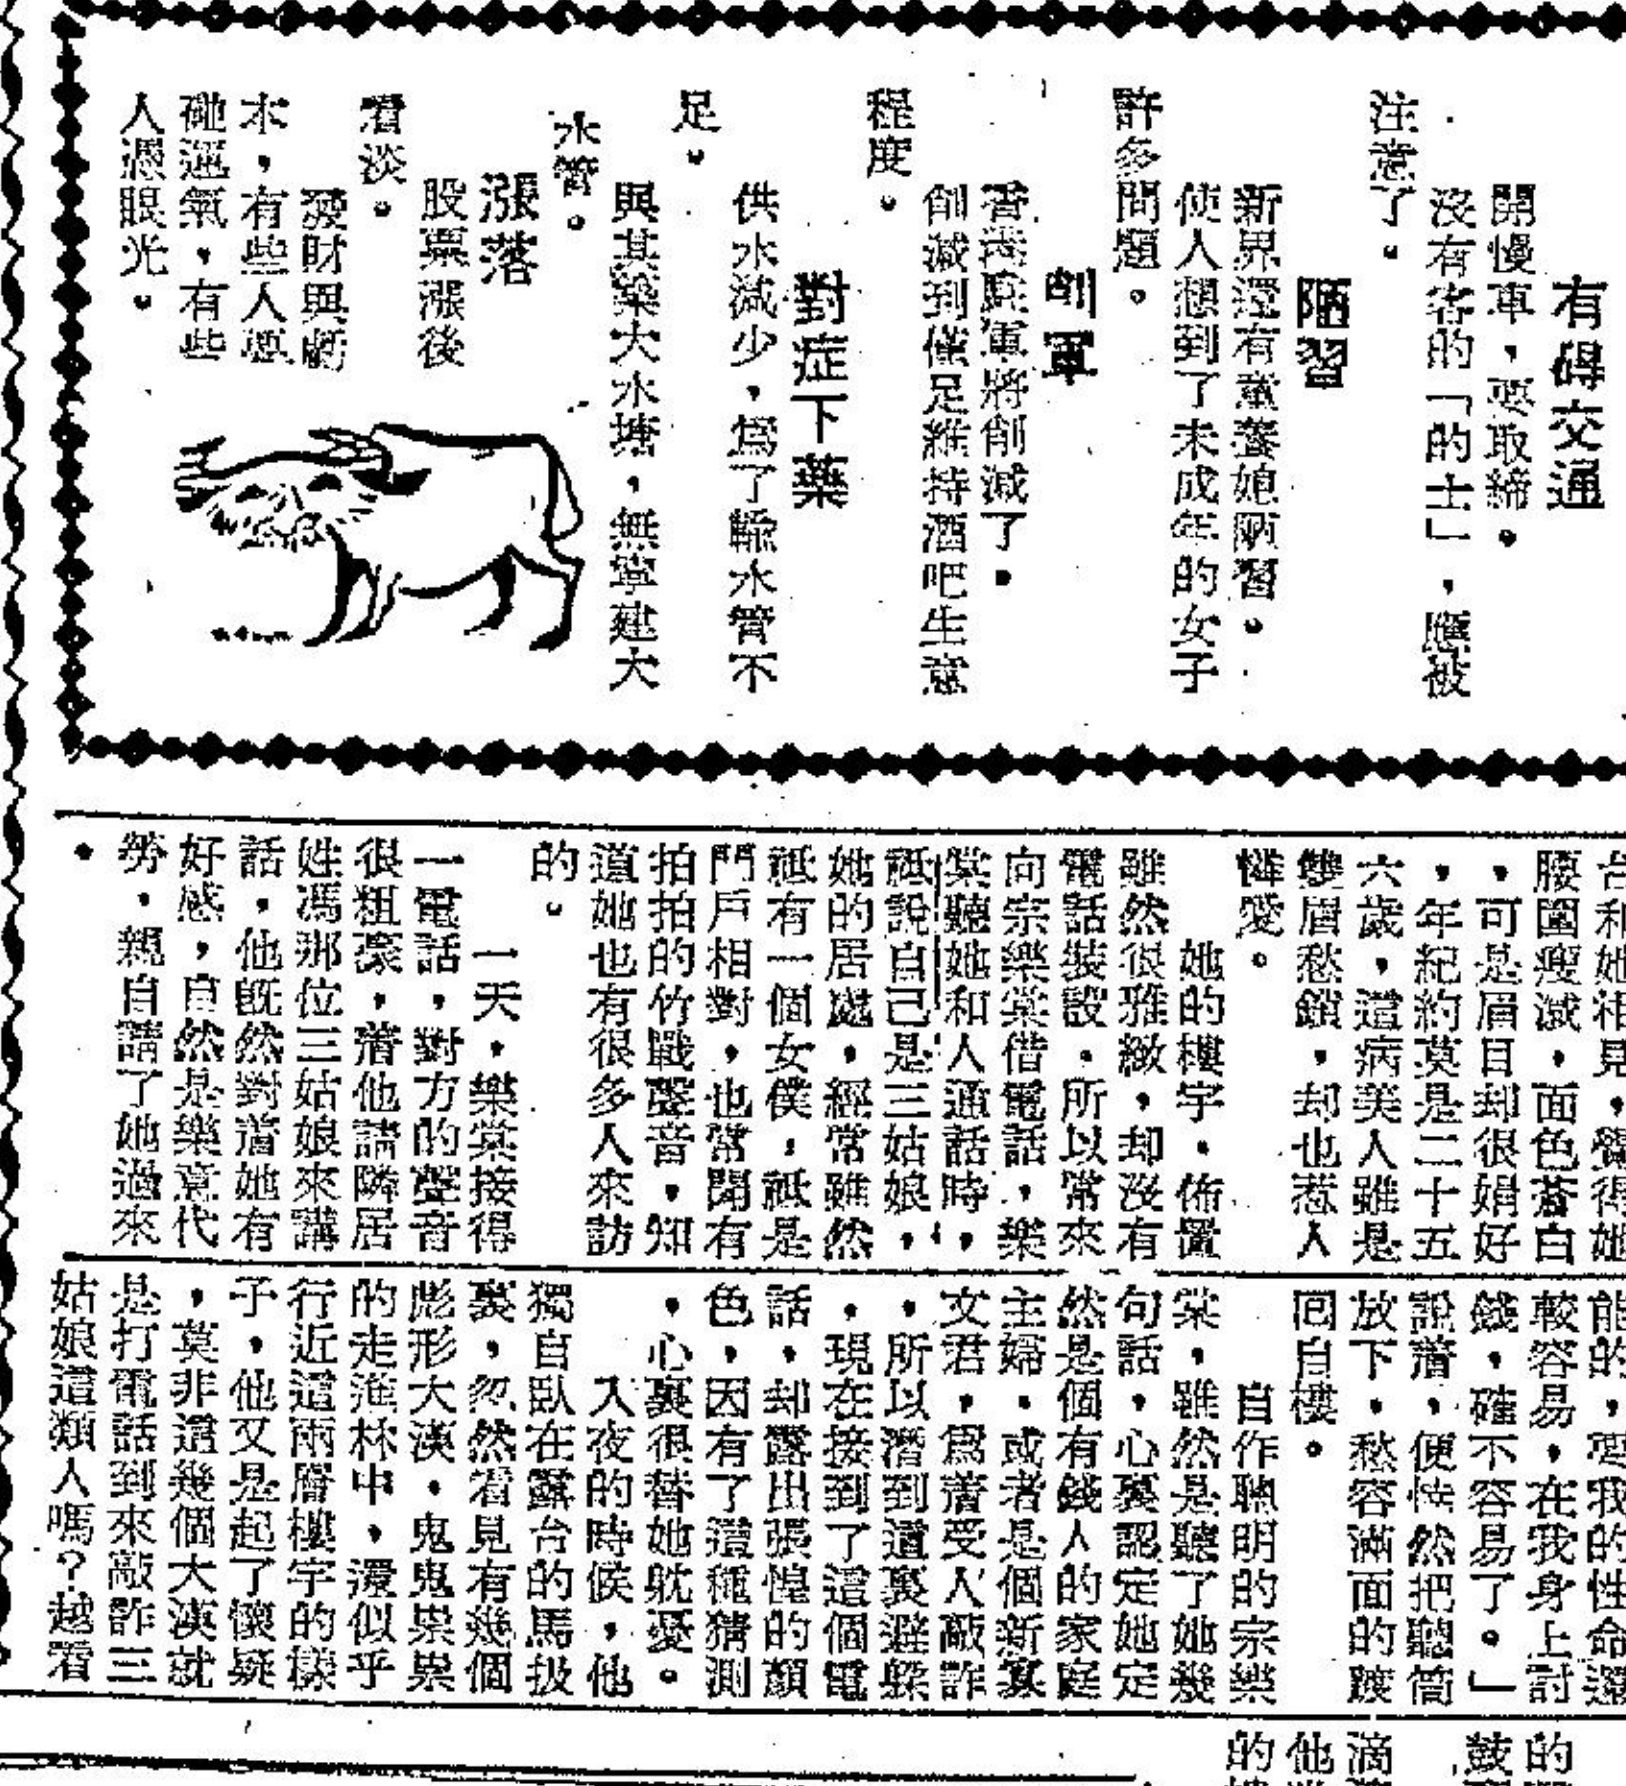 有碍交通
開慢車，要取締。
沒有客的「的士」，應被
注意了。
陋習
新界還有童養媳陋習。
使人想到了未成年的女子
許多問題。
削軍
香港駐軍將削減了。
削減到僅足維持酒吧生意
程度。
對症下藥
供水減少，爲了輸水管不
足。
與其築大水塘，無寧建大
水管。
漲落
股票漲後
看淡。
發財與虧
本，有些人要
碰運氣，有些
人憑眼光。
台和她相見，覺得她
腰圍瘦減，面色蒼白
，可是眉目却很娟好
，年紀約莫是二十五
六歲，這病美人雖是
雙眉愁鎖，却也惹人
憐愛。
她的樓宇，佈置
雖然很雅緻，却沒有
電話裝設，所以常來
向宗樂棠借電話，樂
棠聽她和人通話時，
祗說自己是三姑娘，
她的居處，經常雖然
祗有一個女僕，祗是
門戶相對，也常聞有
拍拍的竹戰聲音，知
道她也有很多人來訪
的。
一天，樂棠接得
一電話，對方的聲音
很粗豪，着他請隣居
姓馮那位三姑娘來講
話，他旣然對着她有
好感，自然是樂意代
勞，親自請了她過來
。
能的，要我的性命還
較容易，在我身上討
錢，確不容易了。」
說着，便怯然把聽筒
放下，愁容滿面的踱
回自樓。
自作聰明的宗樂
棠，雖然是聽了她幾
句話，心裏認定她定
然是個有錢人的家庭
主婦，或者是個新寡
文君，爲着受人敲詐
，所以潛到這裏避躲
，現在接到了這個電
話，却露出張惶的顏
色，因有了這種猜測
，心裏很替她躭憂。
入夜的時候，他
獨自臥在露台的馬扱
裏，忽然看見有幾個
彪形大漢，鬼鬼祟祟
的走進林中，還似乎
行近這兩層樓宇的樣
子，他又是起了懷疑
，莫非這幾個大漢就
是打電話到來敲詐三
姑娘這類人嗎？越看
的
鼓
滴
他
的